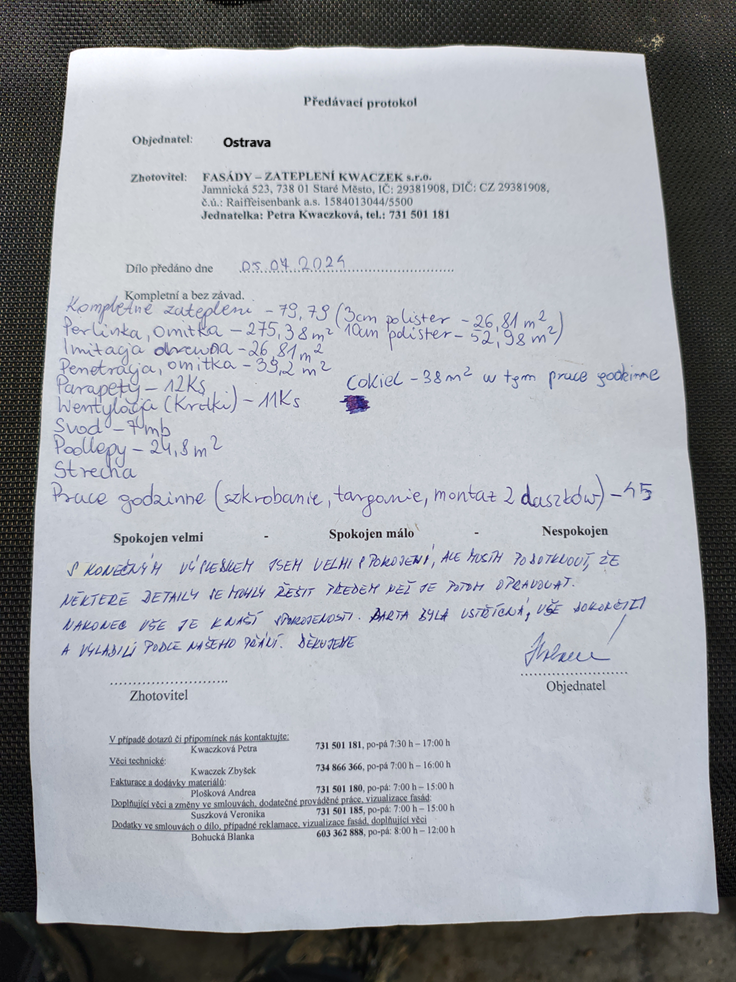 Předávací protokol
Objednatel: Ostrava
Zhotovitel: FASÁDY – ZATEPLENÍ KWACZEK s.r.o.
Jamnická 523, 738 01 Staré Město, IČ: 29381908, DIČ: CZ 29381908,
č.ú.: Raiffeisenbank a.s. 1584013044/5500
Jednatelka: Petra Kwaczková, tel.: 731 501 181
Dílo předáno dne 05.04.2024
Kompletní a bez závad.
Kompletne zateplení – 79,79 (3cm polister – 26,81 m²
Perlinka, omitka – 275,38 m² 10cm polister – 52,98 m²)
Imitacja drewna – 26,81 m²
Penetracja, omitka – 39,2 m²
Parapety – 12Ks cokiel – 38 m² w tym prace godzinne
Wentylacja (Kratki) – 11Ks
Svod – 7 mb
Podlepy – 24,8 m²
Strecha
Prace godzinne (szkrobanie, targanie, montaz 2 daszków) – 45
Spokojen velmi - Spokojen málo - Nespokojen
S KONEČNÝM VÝSLEDKEM JSEM VELMI SPOKOJENÍ, ALE MUSÍM PODOTKNOUT, ŽE
NĚKTERÉ DETAILY SE MOHLY ŘEŠIT PŘEDEM NEŽ JE POTOM OPRAVOVAT.
NAKONEC VŠE JE K NAŠÍ SPOKOJENOSTI. PARTA BYLA VSTŘÍCNÁ, VŠE DOKONČILI
A VYLADILI PODLE NAŠEHO PŘÁNÍ. DĚKUJEME
Zhotovitel Objednatel
V případě dotazů či připomínek nás kontaktujte:
Kwaczková Petra 731 501 181, po-pá 7:30 h – 17:00 h
Věci technické:
Kwaczek Zbyšek 734 866 366, po-pá: 7:00 h – 16:00 h
Fakturace a dodávky materiálů:
Plošková Andrea 731 501 180, po-pá: 7:00 h – 15:00 h
Doplňující věci a změny ve smlouvách, dodatečné prováděné práce, vizualizace fasád:
Suszková Veronika 731 501 185, po-pá: 7:00 h – 15:00 h
Dodatky ve smlouvách o dílo, případné reklamace, vizualizace fasád, doplňující věci
Bohucká Blanka 603 362 888, po-pá: 8:00 h – 12:00 h